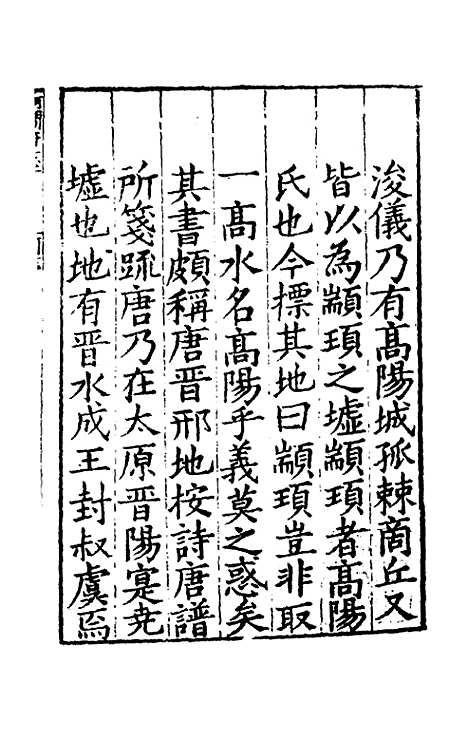 浚儀乃有髙陽城孤棘商丘又
皆以為顓頊之墟顓頊者髙陽
氏也今摽其地曰顓頊豈非取
一髙水名髙陽乎義莫之惑矣
其書頗稱唐晋邢地按詩唐譜
所箋䟽唐乃在太原晋陽寔尭
墟也地有晋水成王封叔虞焉